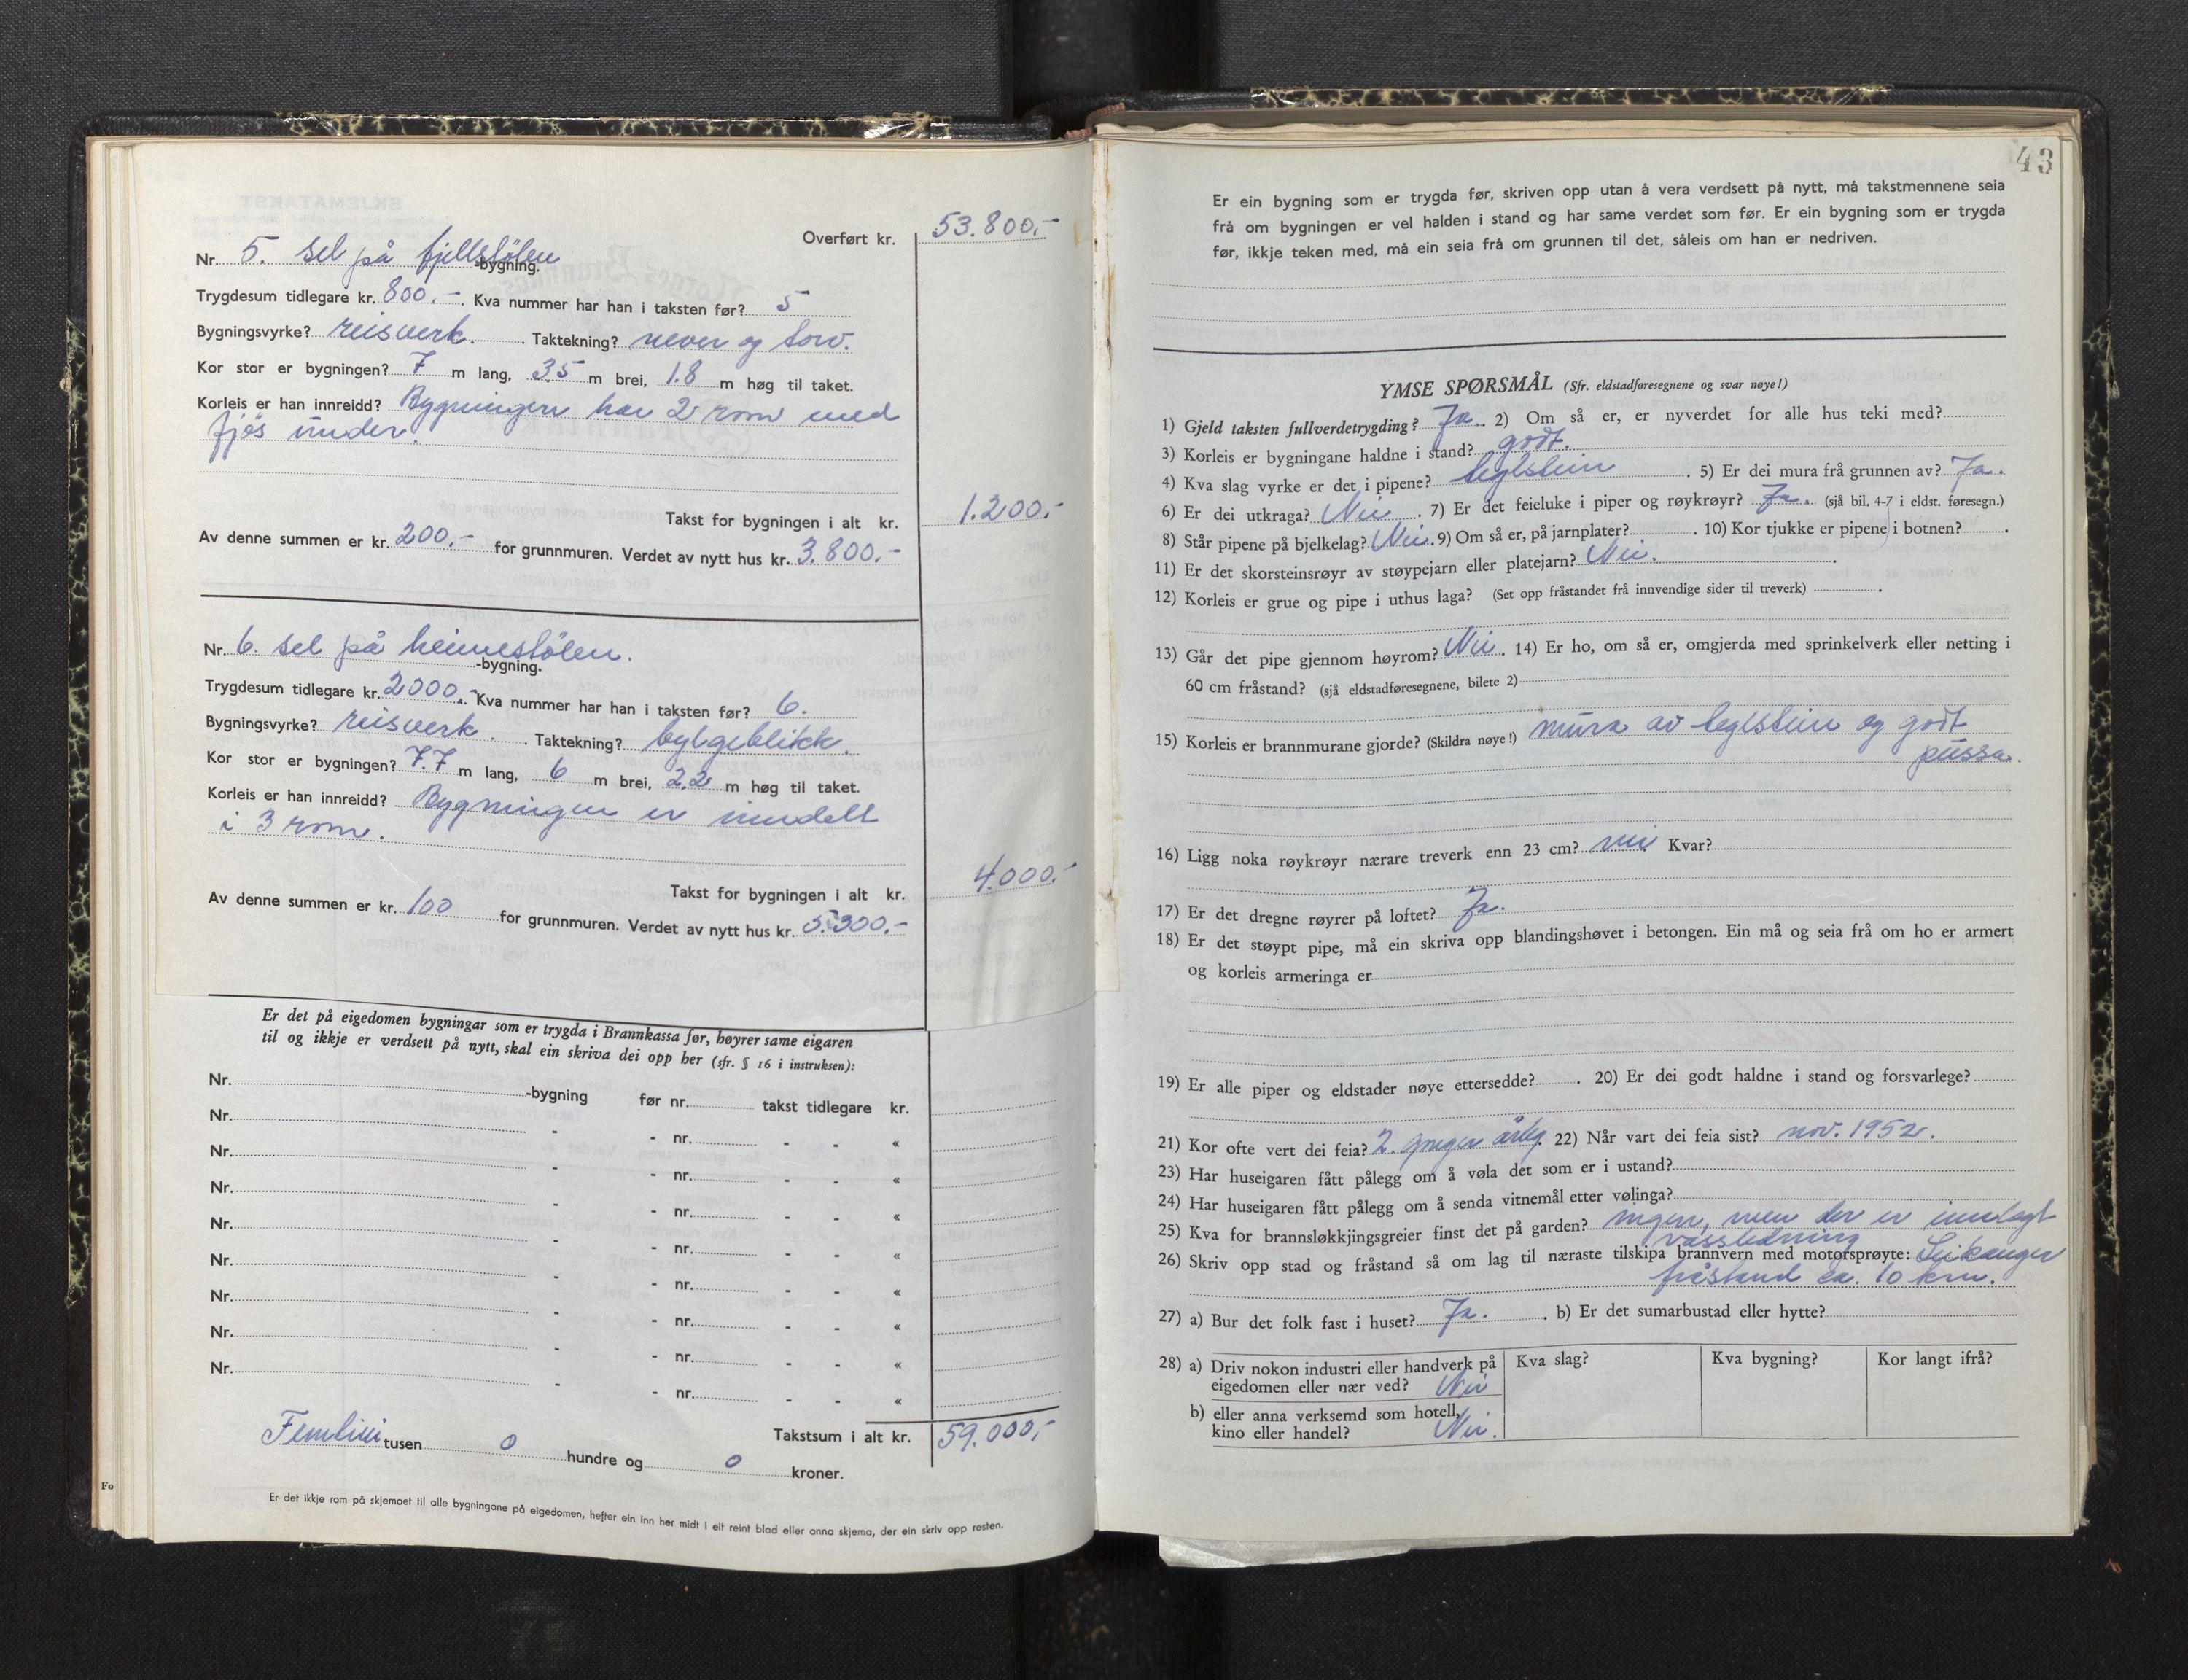 Overført kr. 53.800,-
Nr. 5. sel på fjellstölen -bygning.
Trygdesum tidlegare kr. 800.-. Kva nummer har han i taksten før? 5
Bygningsvyrke? reisverk. Taktekning? never og torv.
Kor stor er bygningen? 7 m lang, 3.5 m brei, 1.8 m høg til taket.
Korleis er han innreidd? Bygningen har 2 rom med
fjös under.
Takst for bygningen i alt kr. 1.200.-
Av denne summen er kr. 200.- for grunnmuren. Verdet av nytt hus kr. 3.800.-
Nr. 6. sel på heimestölen. -bygning.
Trygdesum tidlegare kr. 2000.- Kva nummer har han i taksten før? 6.
Bygningsvyrke? reisverk. Taktekning? bylgeblikk.
Kor stor er bygningen? 7.7 m lang, 6 m brei, 2.2 m høg til taket.
Korleis er han innreidd? Bygningen er inndelt
i 3 rom.
Takst for bygningen i alt kr. 4.000.-
Av denne summen er kr. 100 for grunnmuren. Verdet av nytt hus kr. 5.300.-
Er det på eigedomen bygningar som er trygda i Brannkassa før, høyrer same eigaren
til og ikkje er verdsett på nytt, skal ein skriva dei opp her (sfr. § 16 i instruksen):
Nr. -bygning før nr. takst tidlegare kr.
Nr. - - nr. - - «
Nr. - - nr. - - «
Nr. - - nr. - - «
Nr. - - nr. - - «
Nr. - - nr. - - «
Nr. - - nr. - - «
Nr. - - nr. - - «
Nr. - - nr. - - «
Takstsum i alt kr. 59.000,-
Femtini tusen 0 hundre og 0 kroner.
Er det ikkje rom på skjemaet til alle bygningane på eigedomen, hefter ein inn her midt i eit reint blad eller anna skjema, der ein skriv opp resten.
Fo
43
Er ein bygning som er trygda før, skriven opp utan å vera verdsett på nytt, må takstmennene seia
frå om bygningen er vel halden i stand og har same verdet som før. Er ein bygning som er trygda
før, ikkje teken med, må ein seia frå om grunnen til det, såleis om han er nedriven.
YMSE SPØRSMÅL (Sfr. eldstadføresegnene og svar nøye!)
1) Gjeld taksten fullverdetrygding? Ja. 2) Om så er, er nyverdet for alle hus teki med?
3) Korleis er bygningane haldne i stand? godt.
4) Kva slag vyrke er det i pipene? teglstein. 5) Er dei mura frå grunnen av? Ja.
6) Er dei utkraga? Nei. 7) Er det feieluke i piper og røykrøyr? Ja. (sjå bil. 4-7 i eldst. føresegn.)
8) Står pipene på bjelkelag? Nei. 9) Om så er, på jarnplater? . 10) Kor tjukke er pipene i botnen? .
11) Er det skorsteinsrøyr av støypejarn eller platejarn? Nei.
12) Korleis er grue og pipe i uthus laga? (Set opp fråstandet frå innvendige sider til treverk) .
13) Går det pipe gjennom høyrom? Nei. 14) Er ho, om så er, omgjerda med sprinkelverk eller netting i
60 cm fråstand? (sjå eldstadføresegnene, bilete 2)
15) Korleis er brannmurane gjorde? (Skildra nøye!) mura av teglstein og godt
pussa.
16) Ligg noka røykrøyr nærare treverk enn 23 cm? nei Kvar?
17) Er det dregne røyrer på loftet? Ja.
18) Er det støypt pipe, må ein skriva opp blandingshøvet i betongen. Ein må og seia frå om ho er armert
og korleis armeringa er
19) Er alle piper og eldstader nøye ettersedde? . 20) Er dei godt haldne i stand og forsvarlege?
21) Kor ofte vert dei feia? 2. gonger årleg. 22) Når vart dei feia sist? nov. 1952.
23) Har huseigaren fått pålegg om å vøla det som er i ustand?
24) Har huseigaren fått pålegg om å senda vitnemål etter vølinga?
25) Kva for brannsløkkjingsgreier finst det på garden? ingen, men der er innlagt
vassledning
26) Skriv opp stad og fråstand så om lag til næraste tilskipa brannvern med motorsprøyte: Leikanger
fråstand ca. 10 km.
27) a) Bur det folk fast i huset? Ja. . b) Er det sumarbustad eller hytte?
28) a) Driv nokon industri eller handverk på Kva slag? Kva bygning? Kor langt ifrå?
eigedomen eller nær ved? Nei
b) eller anna verksemd som hotell,
kino eller handel? Nei.